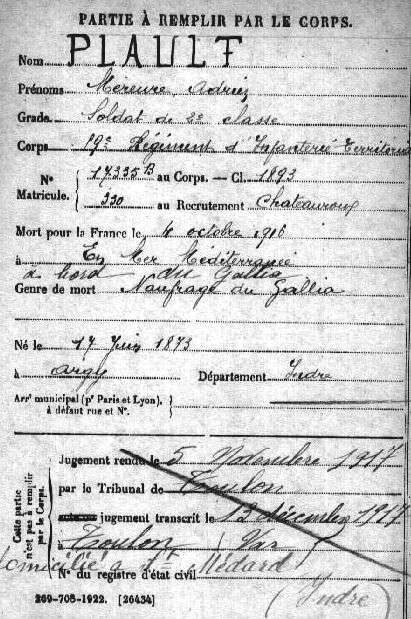 PARTIE À REMPLIR PAR LE CORPS.
Nom PLAULT
Prénoms Mercure, Adrien
Grade Soldat de 2e classe
Corps 19e Régiment d'Infanterie Territoriale
N° Matricule. 17335 B au Corps. — Cl. 1893
330 au Recrutement Chateauroux
Mort pour la France le 4 octobre 1916
à En Mer Méditerranée
à bord du Gallia
Genre de mort Naufrage du Gallia
Né le 17 Juin 1873
à Argy Département Indre
Arrt municipal (pr Paris et Lyon), à défaut rue et N°.
Cette partie n'est pas à remplir par le Corps.
Jugement rendu le 5 Novembre 1917
par le Tribunal de Toulon
jugement transcrit le 13 décembre 1917
à Toulon Var
domicilié à St Médard
N° du registre d'état civil
(Indre)
269-708-1922. [26434]